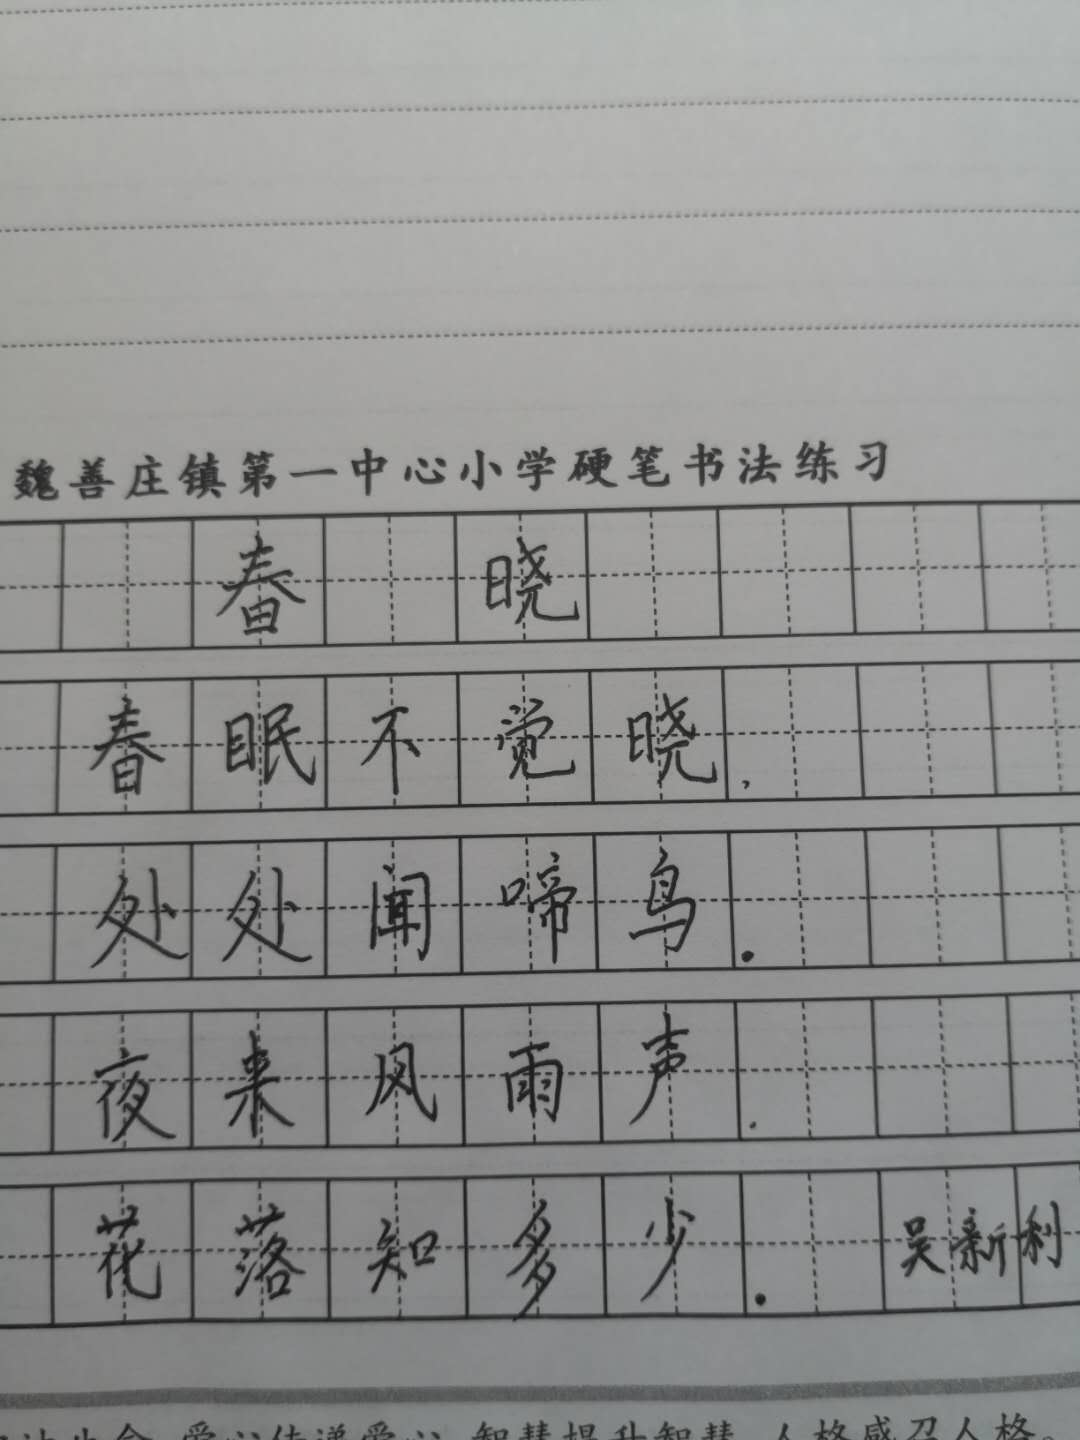 魏善庄镇第一中心小学硬笔书法练习
春 晓
春眠不觉晓,
处处闻啼鸟.
夜来风雨声.
花落知多少. 吴新利
生命 爱心传递爱心 智慧提升智慧 人格感召人格。